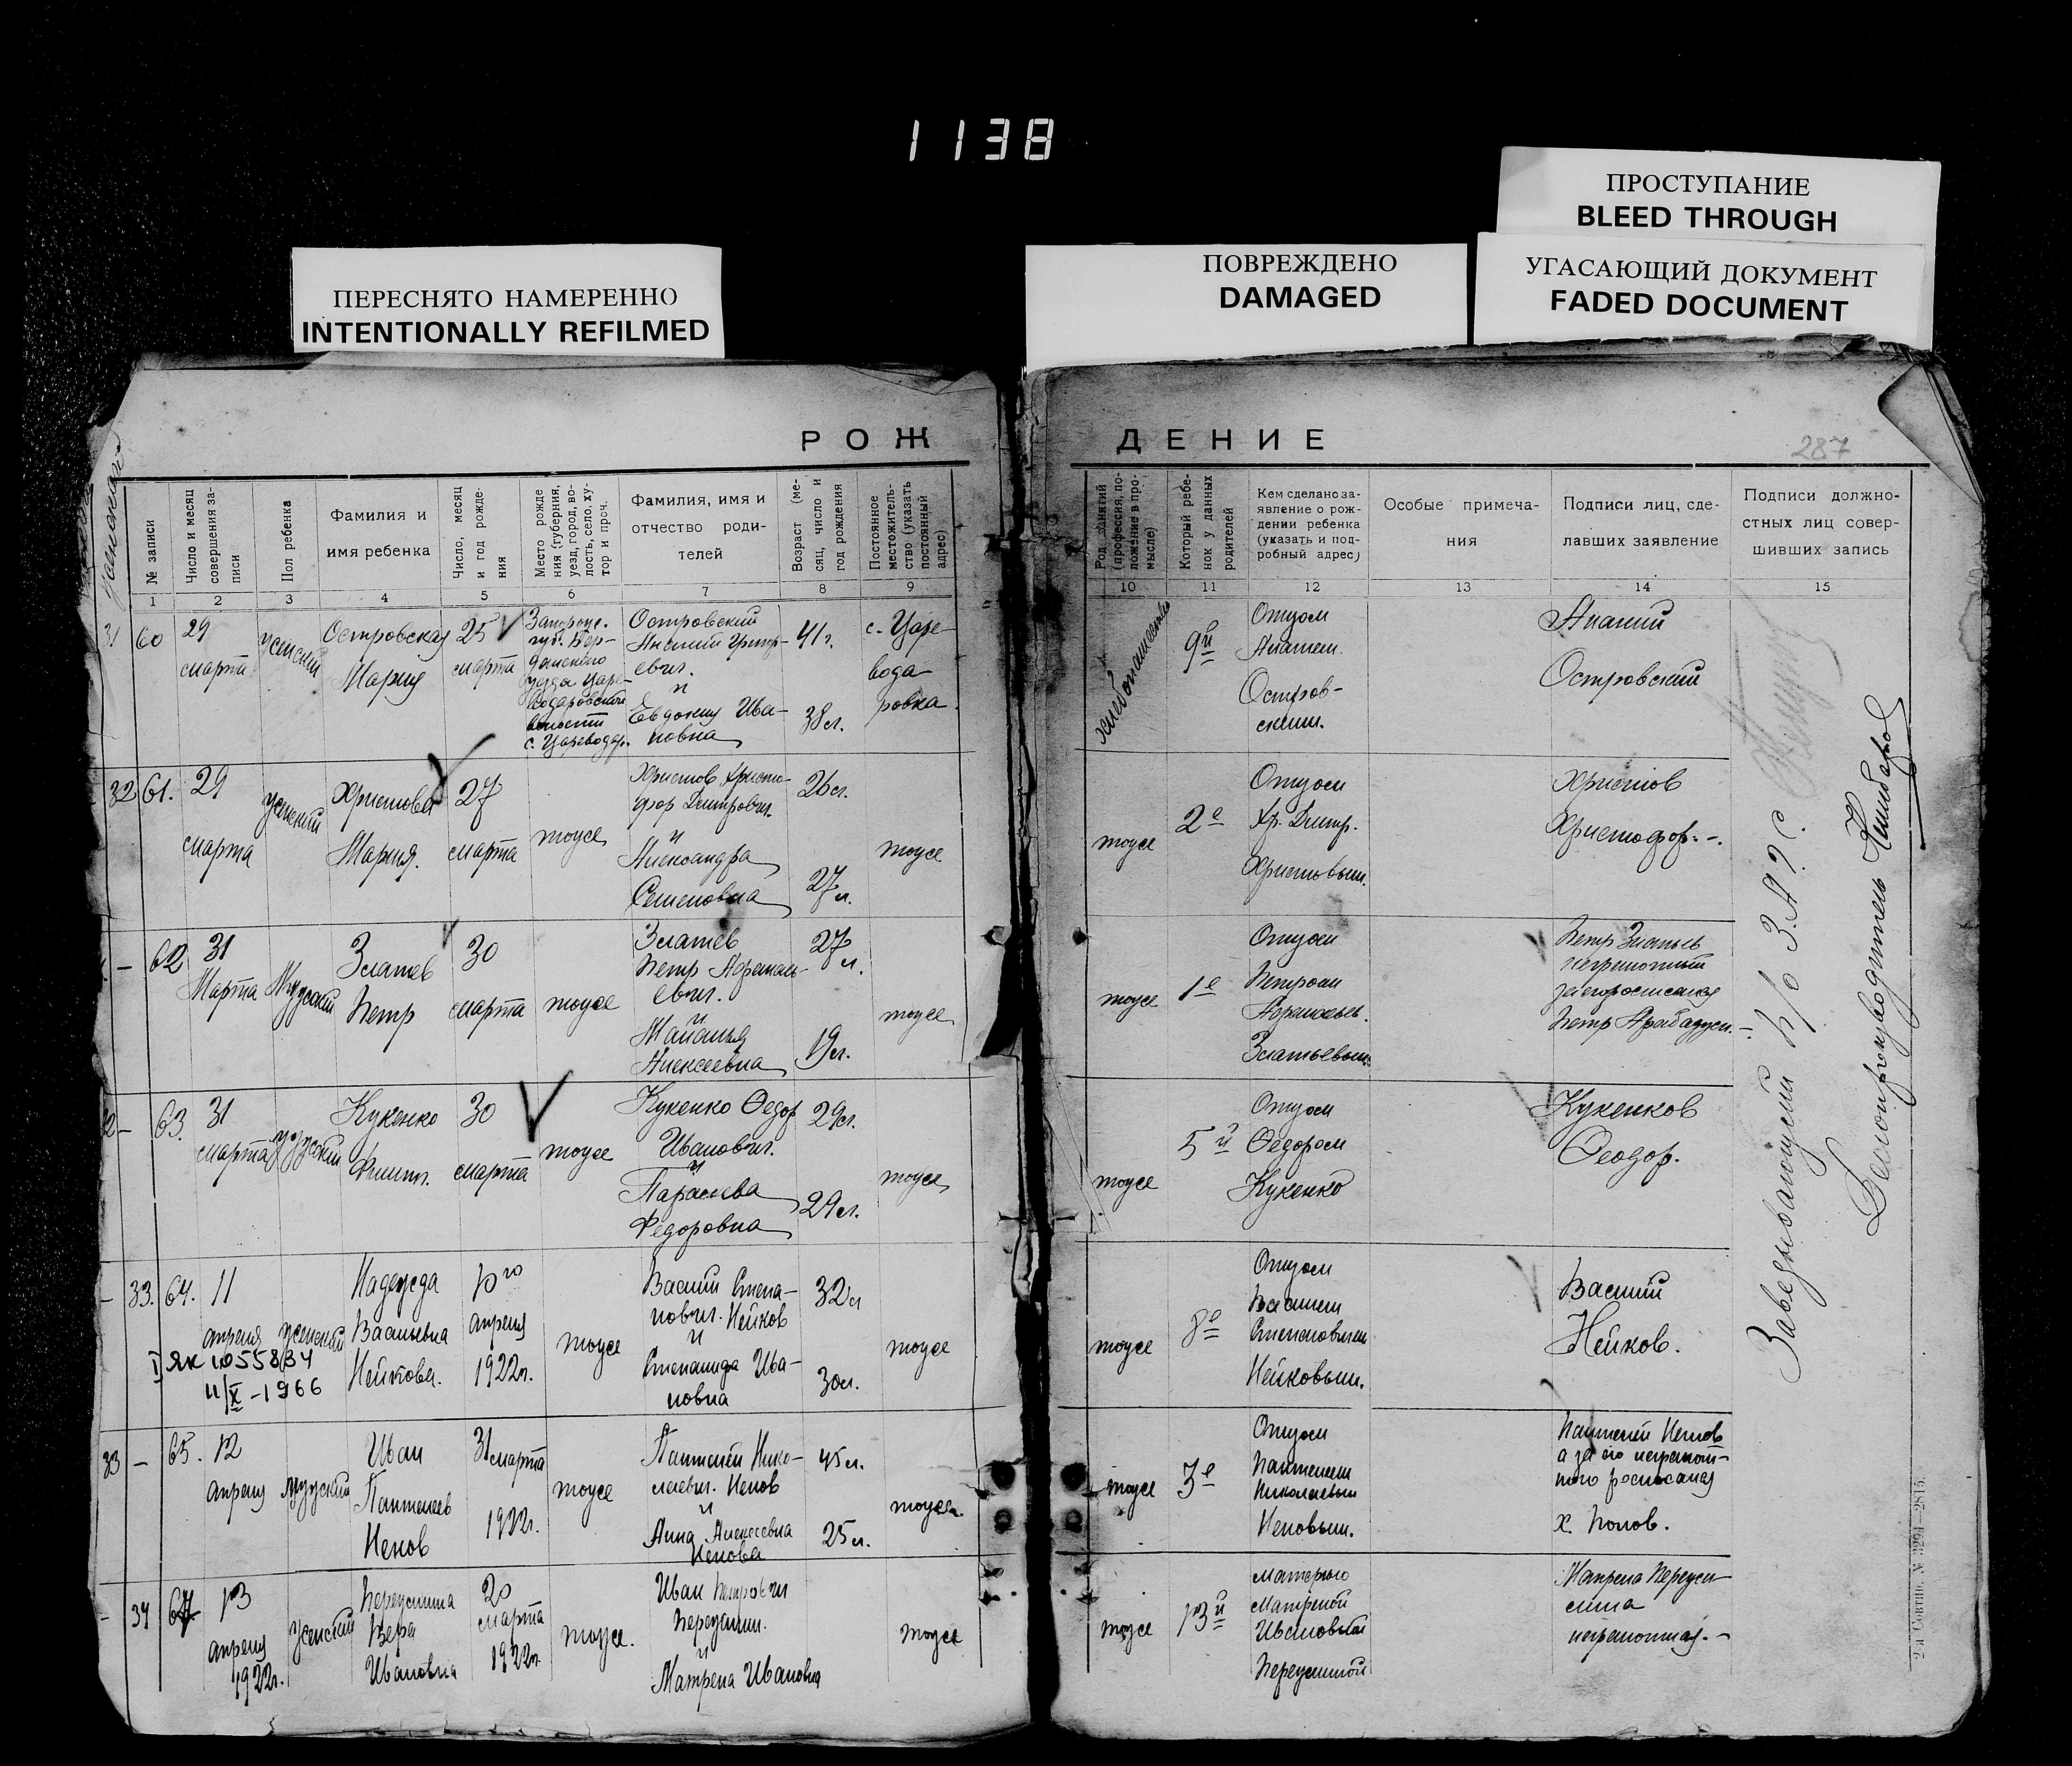 1138
ПРОСТУПАНИЕ
BLEED THROUGH
ПЕРЕСНЯТО НАМЕРЕННО
INTENTIONALLY REFILMED
ПОВРЕЖДЕНО
DAMAGED
УГАСАЮЩИЙ ДОКУМЕНТ
FADED DOCUMENT
РОЖ
ДЕНИЕ
287
№ записи
Число и месяц
совершения за-
писи
Пол ребенка
Фамилия и
имя ребенка
Число, месяц
и год рожде-
ния
Место рожде
ния (губерния,
уезд, город, во-
лость, село, ху-
тор и проч.
Фамилия, имя и
отчество роди-
телей
Возраст (ме-
сяц, число и
год рождения
Постоянное
местожитель-
ство (указать
постоянный
адрес)
Род занятий
(профессия, по-
ложение в про-
мысле)
Который ребе-
нок у данных
родителей
Кем сделано за-
явление о рож-
дении ребенка
(указать и под-
робный адрес)
Особые примеча-
ния
Подписи лиц, сде-
лавших заявление
Подписи должно-
стных лиц совер-
шивших запись
1 2 3 4 5 6 7 8 9
10 11 12 13 14 15
31
60
29
марта
женский
Островская
Мария
25
марта
Запорож.
губ. Бер-
дянского
уезда Царе-
водаровской
волости
с. Цареводар.
Островский
Ананий Григор-
евич.
и
Евдокия Ива-
новна
41 г.
38 л.
с. Царе-
вода-
ровка.
хлебопашество
9й
Отцом
Ананием
Остров-
ским.
Ананий
Островский
32
61.
29
марта
женский
Христова
Мария.
27
марта
тоже
Христов Христо-
фор Дмитрович.
и
Александра
Семеновна
26 л.
27 л.
тоже
тоже
2е
Отцом
Хр. Дмитр.
Христовым.
Христов
Христофор. -.
62
31
Марта
Мужской
Златев
Петр
30
марта
тоже
Златев
Петр
евич.
и
Алексеевна
27 л.
19 л.
тоже
тоже
1е
Отцом
Петром
Златьевым.
Петр Златьев
неграмотный
за его росписался
Петр
63.
31
марта
мужской
Кукенко
Филип.
30
марта
тоже
Кукенко Федор
Иванович.
и
Парасева
Федоровна
29 л.
29 л.
тоже
тоже
5й
Отцом
Федором
Кукенко
Кукенков
Феодор.
33.
64.
11
апреля
женский
I ЯК 1055834
11/X-1966
Надежда
Васильевна
Нейкова.
10го
апреля
1922 г.
тоже
Василий Степа-
нович. Нейков
и
Степанида Ива-
новна
32 л
30 л.
тоже
тоже
8е
Отцом
Василием
Степановичем
Нейковым.
Василий
Нейков.
33
65.
12
апреля
мужский
Иван
Пантелеев
Ненов
31 марта
1922 г.
тоже
Пантелей Нико-
лаевич. Ненов
и
Анна Алексеевна
Ненова
45 л.
25 л.
тоже.
тоже
3е
Отцом
Пантелеем
Николаевым
Неновым.
Пантелей Ненов
а за его неграмот-
ного росписался
х. Попов.
34
67
13
апреля
1922 г.
женский
Вера
Ивановна
20
марта
1922 г.
тоже.
Иван Петрович
и
Матрена Ивановна
тоже
тоже
13й
матерью
Матреной
Ивановной
Матрена
неграмотная. -
Заведывающий п/о З.А.Г.С.
Делопроизводитель
2-я Совтип. № 3294-2815.